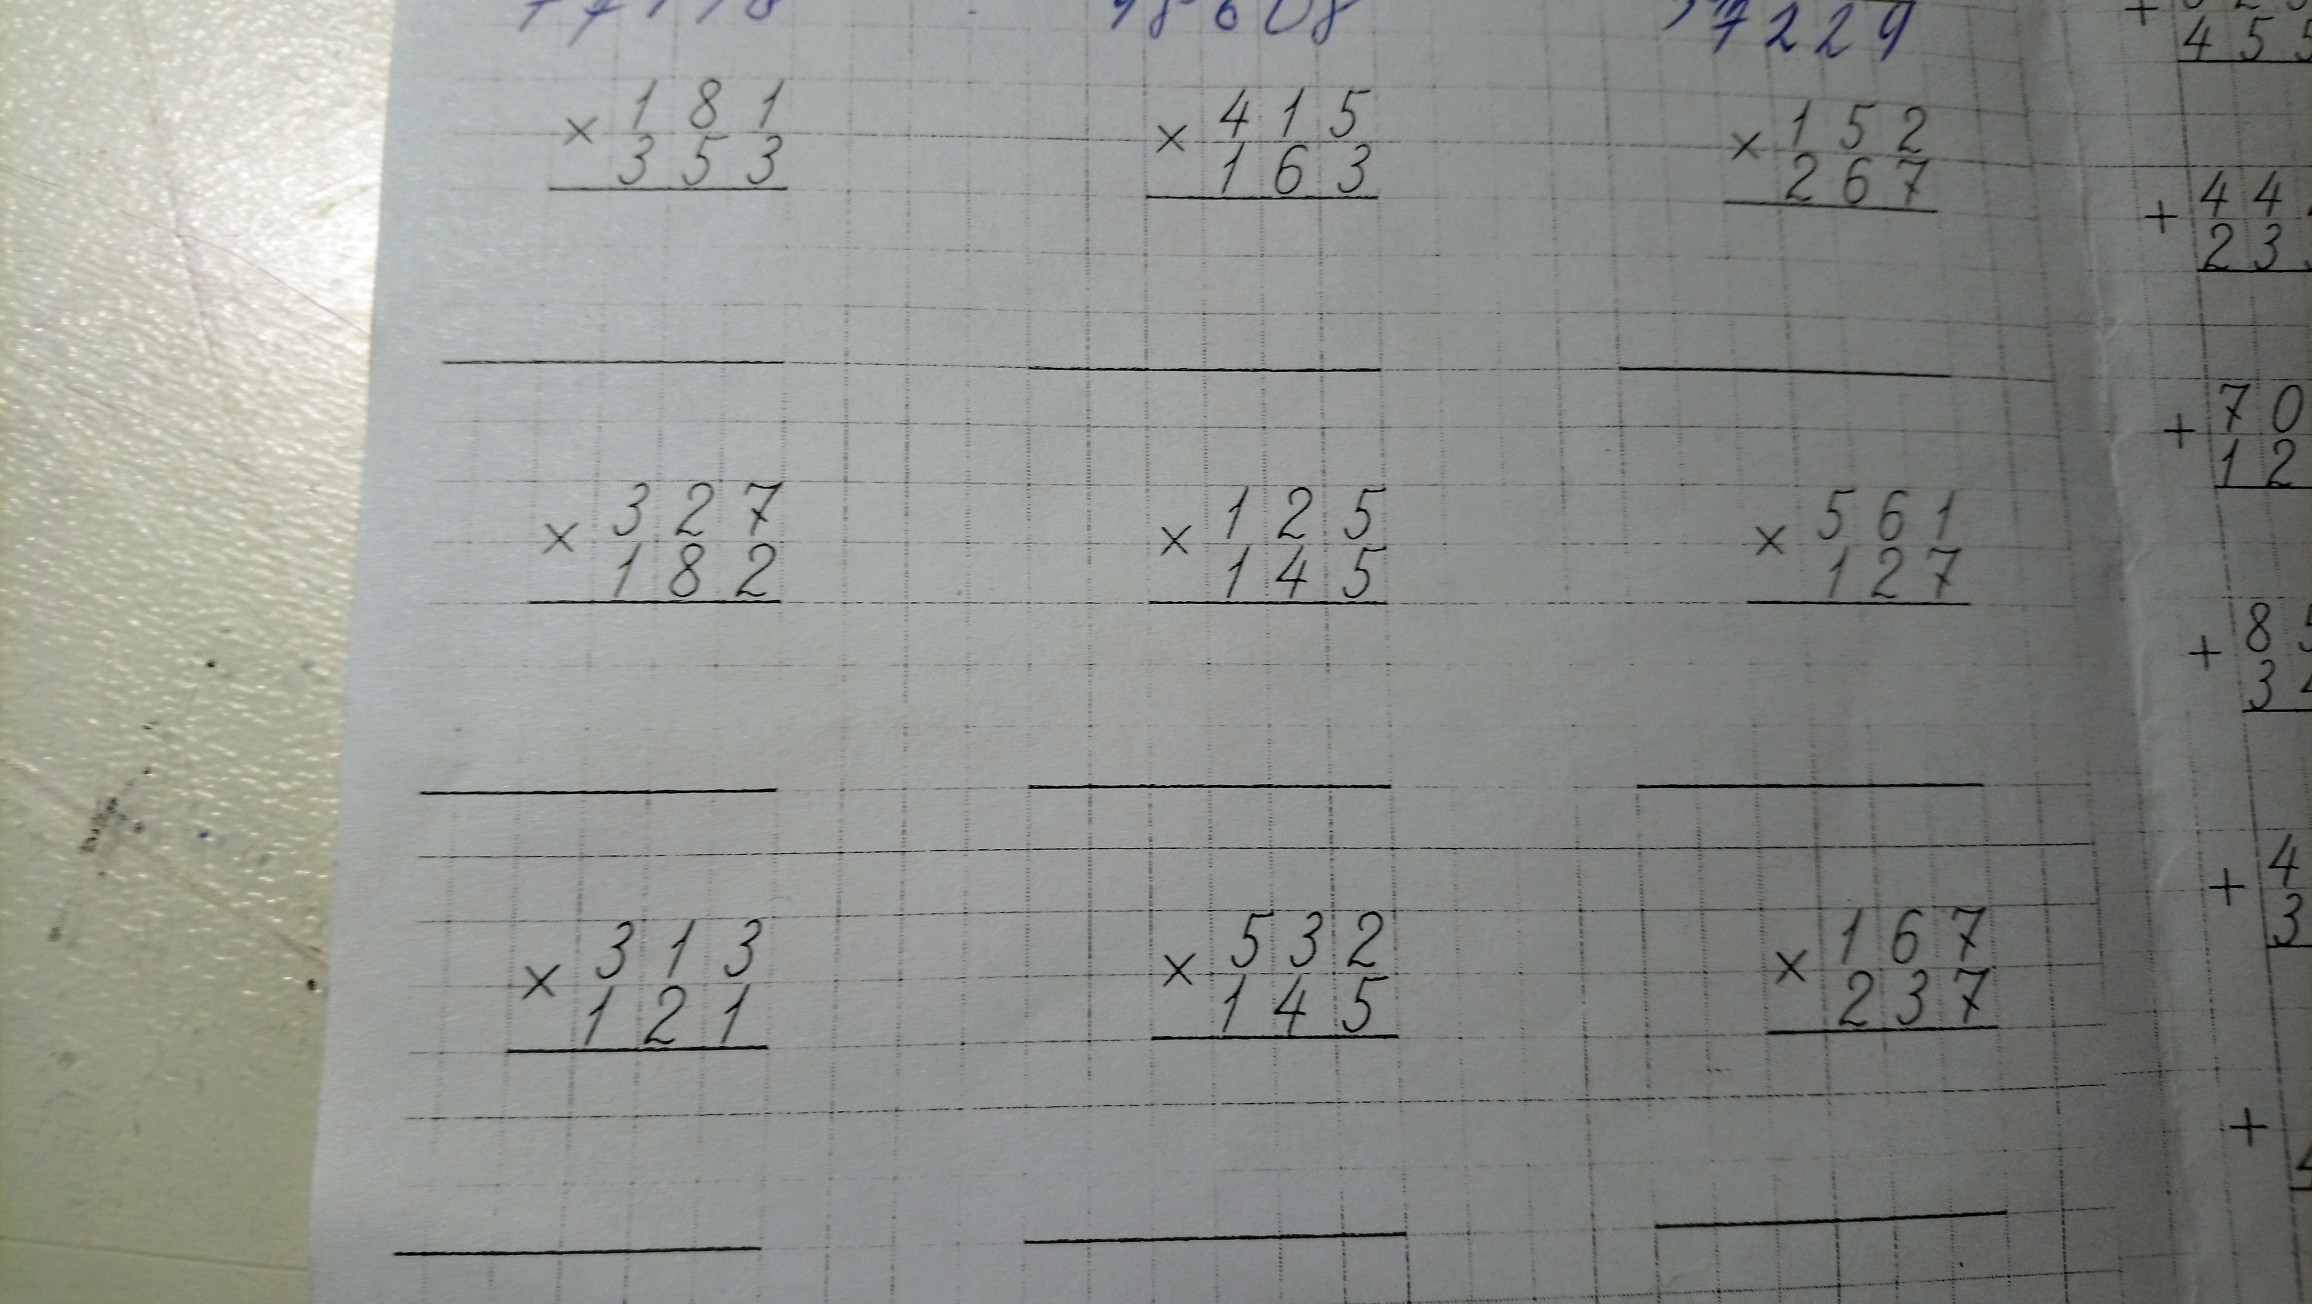 7229
× 181
353
× 415
163
× 152
267
× 327
182
× 125
145
× 561
127
× 313
121
× 532
145
× 167
237
455
+ 44
23
+ 70
12
+ 8
3
+ 4
3
+